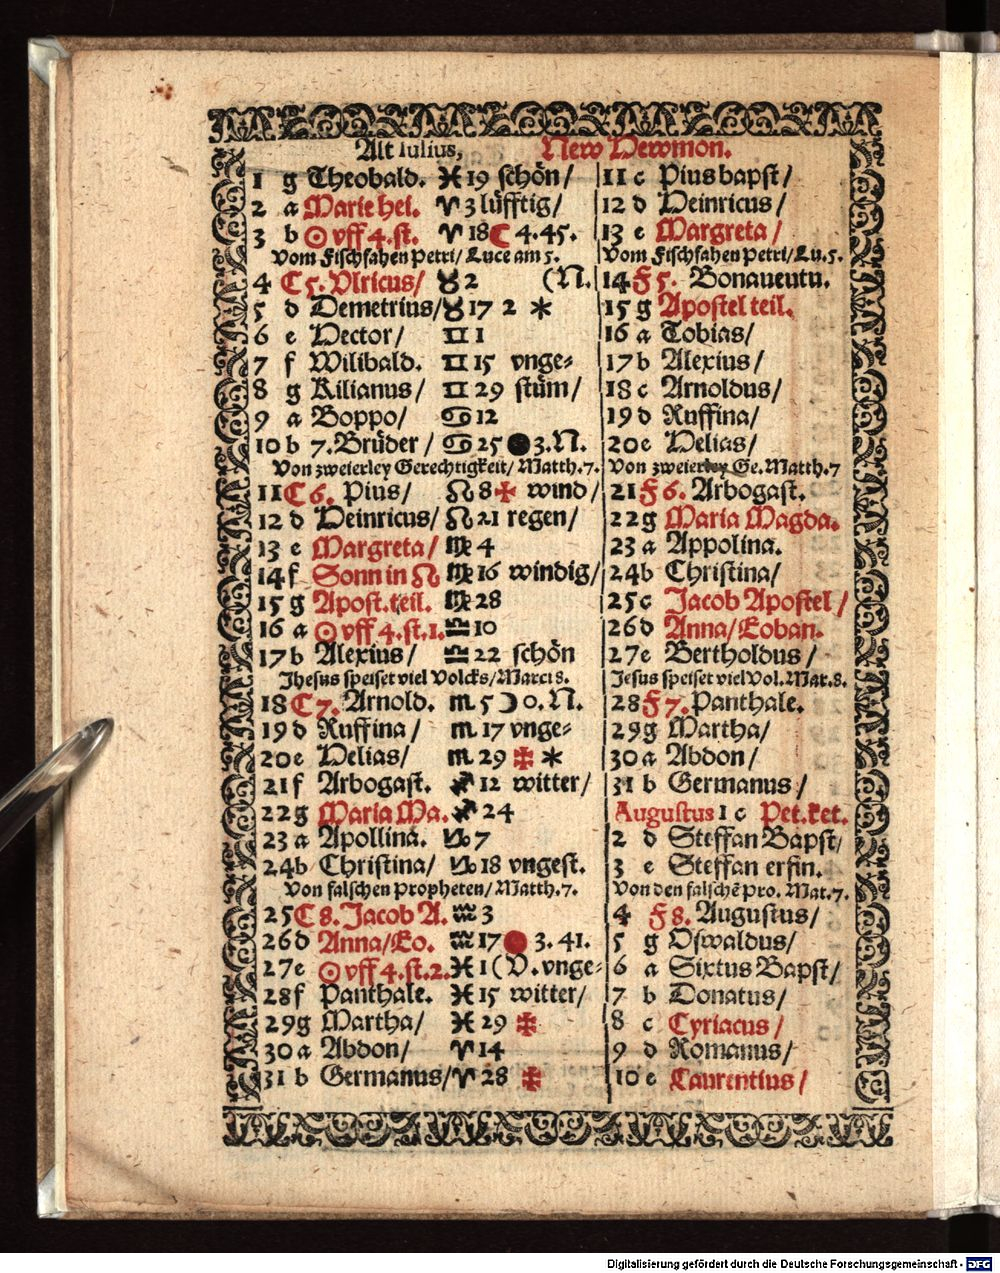 Alt Iulius,
1 g Theobald. ♓ 19 schön/
2 a Marie hei. ♈ 3 lüfftig/
3 b ☉ vff 4. st. ♈ 18 ☾ 4.45.
Vom Fischfahen Petri/ Luce am 5.
4 C 5. Vlricus/ ♉ 2 (N.
5 d Demetrius/ ♉ 17 2 *
6 e Hector/ ♊ 1
7 f Wilibald. ♊ 15 vnge-
8 g Kilianus/ ♊ 29 stüm/
9 a Boppo/ ♋ 12
10 b 7. Brüder/ ♋ 25 ● 3. N.
Von zweierley Gerechtigkeit/ Matth. 7.
11 C 6. Pius/ ♌ 8 ✠ wind/
12 d Heinricus/ ♌ 21 regen/
13 e Margreta/ ♍ 4
14 f Sonn in ♌ ♍ 16 windig/
15 g Apost. teil. ♍ 28
16 a ☉ vff 4. st. 1. ♎ 10
17 b Alexius/ ♎ 22 schön
Jhesus speiset viel Volcks/ Marci 8.
18 C 7. Arnold. ♏ 5 ☽ 0. N.
19 d Ruffina/ ♏ 17 vnge-
20 e Helias/ ♏ 29 ✠ *
21 f Arbogast. ♐ 12 witter/
22 g Maria Ma. ♐ 24
23 a Apollina. ♑ 7
24 b Christina/ ♑ 18 vngest.
Von falschen Propheten/ Matth. 7.
25 C 8. Jacob A. ♒ 3
26 d Anna/ Eo. ♒ 17 ● 3. 41.
27 e ☉ vff 4. st. 2. ♓ 1 (V. vnge-
28 f Panthale. ♓ 15 witter/
29 g Martha/ ♓ 29 ✠
30 a Abdon/ ♈ 14
31 b Germanus/ ♈ 28 ✠
New Hewmon.
11 c Pius bapst/
12 d Heinricus/
13 e Margreta/
Vom Fischfahen Petri/ Lu. 5.
14 F 5. Bonauentu.
15 g Apostel teil.
16 a Tobias/
17 b Alexius/
18 c Arnoldus/
19 d Ruffina/
20 e Helias/
Von zweierley Ge. Matth. 7
21 F 6. Arbogast.
22 g Maria Magda.
23 a Appolina.
24 b Christina/
25 c Jacob Apostel/
26 d Anna/ Eoban.
27 e Bertholdus/
Jesus speiset viel Vol. Mar. 8.
28 F 7. Panthale.
29 g Martha/
30 a Abdon/
31 b Germanus/
Augustus 1 c Pet. ket.
2 d Steffan Bapst/
3 e Steffan erfin.
Von den falschē Pro. Mat. 7.
4 F 8. Augustus/
5 g Oswaldus/
6 a Sixtus Bapst/
7 b Donatus/
8 c Cyriacus/
9 d Romanus/
10 e Laurentius/
Digitalisierung gefördert durch die Deutsche Forschungsgemeinschaft - DFG